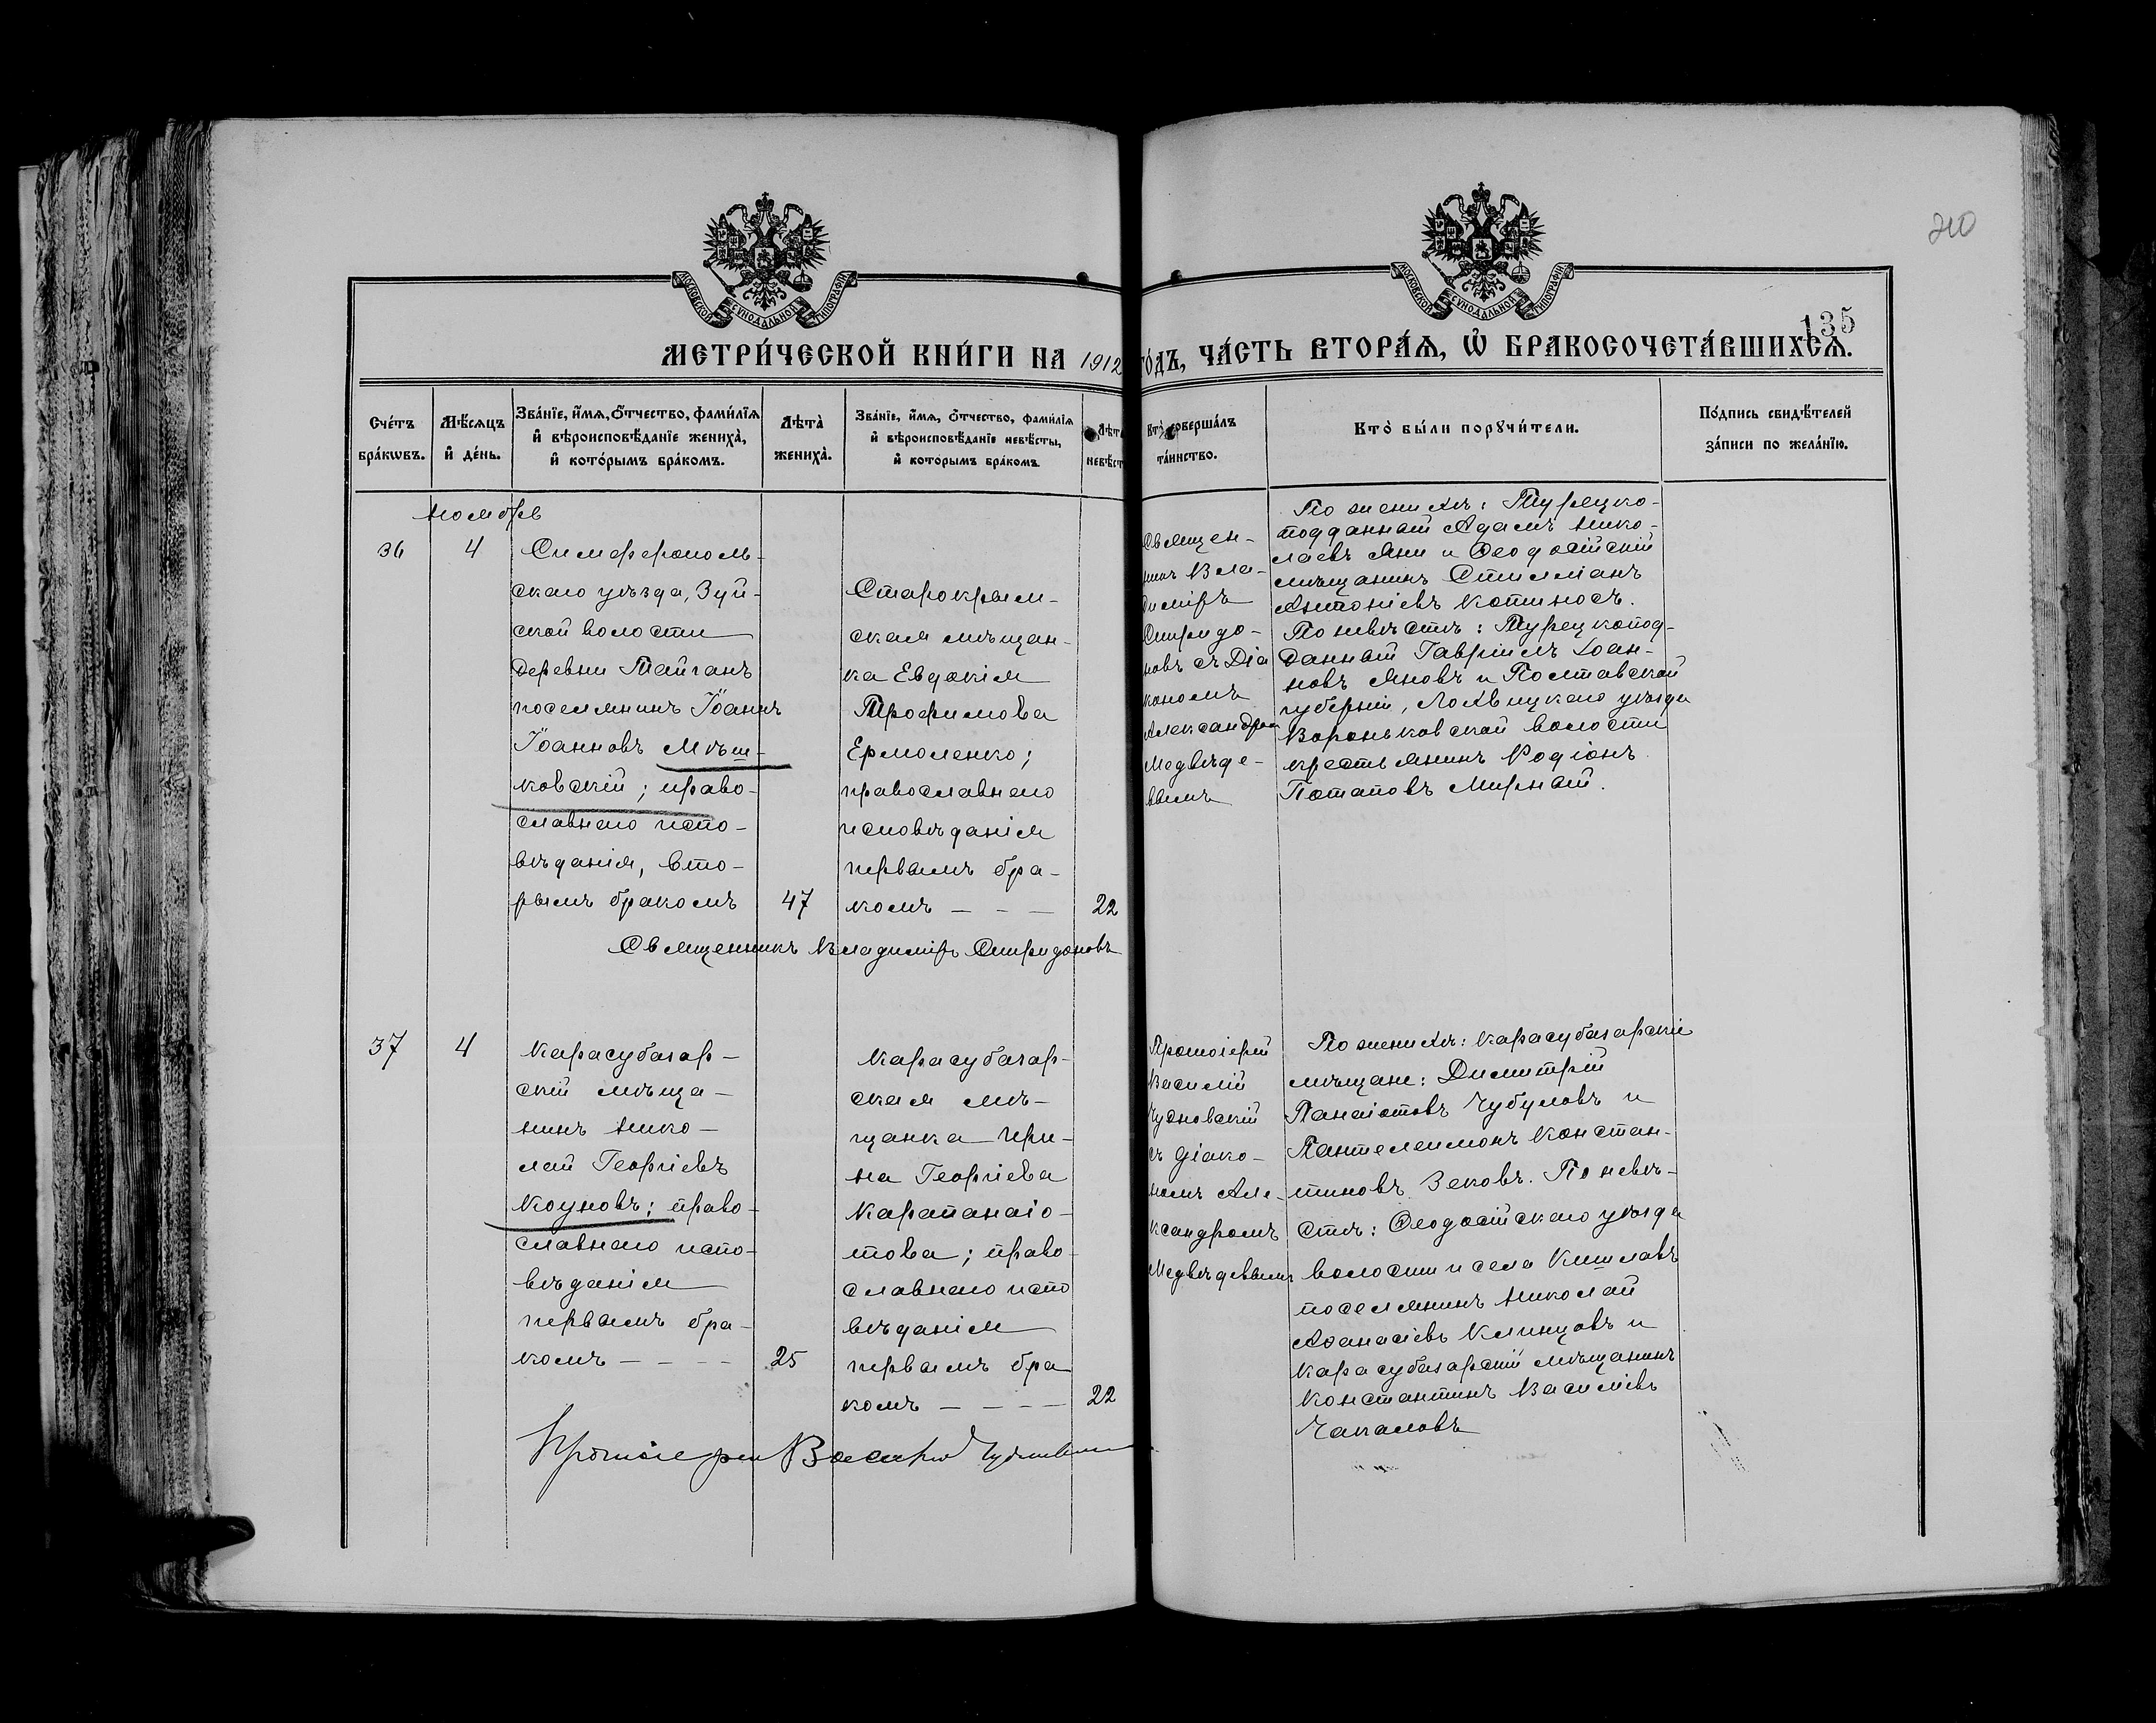 210
МОСКОВСКОЙ СѴНОДАЛЬНОЙ ТИПОГРАФІИ
МОСКОВСКОЙ СѴНОДАЛЬНОЙ ТИПОГРАФІИ
135
МЕТРИ́ЧЕСКОЙ КНИ́ГИ НА 1912 ГО́ДЪ, ЧА́СТЬ ВТОРА́Ѧ, Ѽ БРАКОСОЧЕТА́ВШИХСѦ.
Сче́тъ
бра́кѡвъ.
Мѣ́сѧцъ
и҆ де́нь.
Зва́нїе, и҆́мѧ, ѻ҆́тчество, фами́лїѧ
и҆ вѣроисповѣ́данїе жениха̀,
и҆ кото́рымъ бра́комъ.
Лѣта̀
жениха̀.
Зва́нїе, и҆́мѧ, ѻ҆́тчество, фами́лїѧ
и҆ вѣроисповѣ́данїе невѣ́сты,
и҆ кото́рымъ бра́комъ.
Лѣта
невѣст
Кто̀ соверша́лъ
та́инство.
Кто̀ бы́ли порꙋчи́тели.
По́дпись свидѣ́телей
за́писи по жела́нїю.
Ноябрь
36
4
Симферополь-
скаго уѣзда, Зуй-
ской волости
деревни Тайганъ
поселянинъ Іоаннъ
Іоанновъ Мѣш-
ковскій; право-
славнаго испо-
вѣданія, вто-
рымъ бракомъ
47
Старокрым-
ская мѣщан-
ка Евдокія
Трофимова
Ермоленко;
православнаго
исповѣданія
первымъ бра-
комъ – – –
22
Священ-
никъ Вла-
диміръ
Спиридо-
новъ съ Діа
кономъ
Александром
Медвѣде-
вымъ
По женихѣ: Турецко-
подданный Адамъ Нико-
лаевъ Яни и Ѳеодосійскій
мѣщанинъ Стиліанъ
Антоніевъ Котиносъ.
По невѣстѣ: Турецкопод-
данный Гавріилъ Іоан-
новъ Яновъ и Полтавской
губерніи, Лохвицкаго уѣзда
Вороньковской волости
крестьянинъ Родіонъ
Потаповъ Мирный.
Священникъ Владиміръ Спиридоновъ
37
4
Карасубазар-
скій мѣща-
нинъ Нико-
лай Георгіевъ
Коуновъ; право-
славнаго испо-
вѣданія
первымъ бра-
комъ – – – –
25
Карасубазар-
ская мѣ-
щанка Ири-
на Георгіева
Карапанаіо-
това; право-
славнаго испо
вѣданія
первымъ бра
комъ – – – –
22
Протоіерей
Василій
Чудновскій
съ діако-
номъ Але-
ксандромъ
Медвѣдевымъ
По женихѣ: Карасубазарскіе
мѣщане: Димитрій
Панаіотовъ Чубуловъ и
Пантелеимонъ Констан-
тиновъ Зековъ. По невѣ-
стѣ: Ѳеодосійскаго уѣзда
волости и села Кишлавъ
поселянинъ Николай
Аѳанасіевъ Клинцовъ и
Карасубазарскій мѣщанинъ
Константинъ Василіевъ
Чакаловъ
Протоіерей Василій Чудновскій